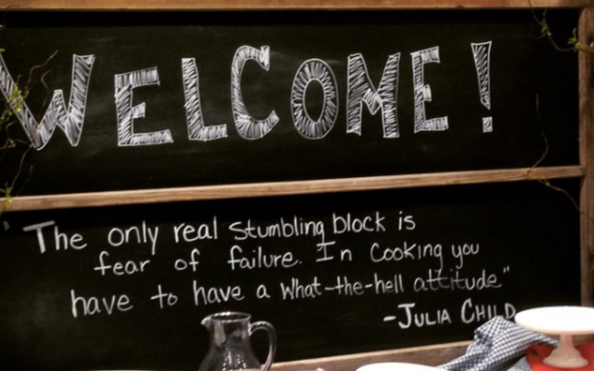 WELCOME!
"The only real stumbling block is
fear of failure. In cooking you
have to have a what-the-hell attitude"
-JULIA CHILD